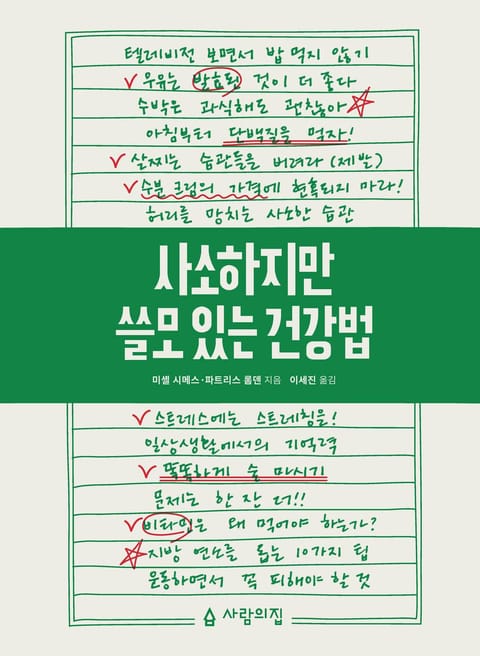 텔레비전 보면서 밥 먹지 않기
우유는 발효된 것이 더 좋다
수박은 과식해도 괜찮아
아침부터 단백질을 먹자!
살찌는 습관들을 버려라 (제발)
수분 크림의 가격에 현혹되지 마라!
허리를 망치는 사소한 습관
사소하지만
쓸모 있는 건강법
미셸 시메스·파트리스 롬덴 지음 이세진 옮김
스트레스에는 스트레칭을!
일상생활에서의 기억력
똑똑하게 술 마시기
문제는 한 잔 더!!
비타민은 왜 먹어야 하는가?
지방 연소를 돕는 10가지 팁
운동하면서 꼭 피해야 할 것
사람의집